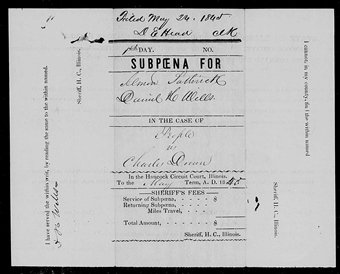 Dated May 24. 1845
D E Head clk
DAY. NO.
SUBPŒNA FOR
Almon
Daniel H Wells
IN THE CASE OF
People
vs
Charles
In the Hancock Circuit Court, Illinois.
To the May Term, A. D. 1845
SHERIFF'S FEES
Service of Subpœna, $
Returning Subpœna,
Miles Travel,
Total Amount, $
Sheriff, H. C., Illinois.
I have served the within writ, by reading the same to the within named
Sheriff, H. C., Illinois.
I cannot, in my county, find the within named
Sheriff, H. C., Illinois.